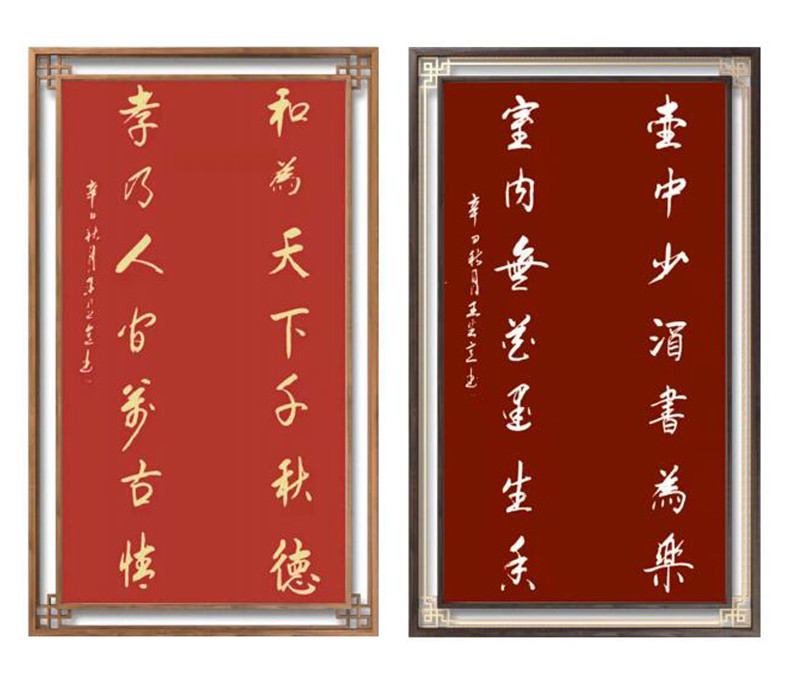 和為天下千秋德
孝乃人间萬古情
辛丑秋月
壺中少酒書為樂
室内無花墨生香
辛丑秋月王